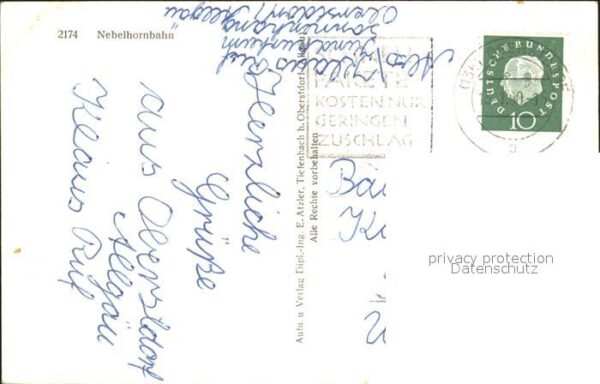 2174 Nebelhornbahn
Herzliche
Grüße
aus Oberstdorf
Allgäu
Klaus Ruf
Klaus Ruf
Sonnenhang
Oberstdorf/Allgäu
Aufn u Verlag Dipl.-Ing. E. Atzler, Tiefenbach b. Oberstdorf-Allgäu
Alle Rechte vorbehalten
PAKETE
KOSTEN NUR
GERINGEN
ZUSCHLAG
DEUTSCHE BUNDESPOST
10
privacy protection
Datenschutz